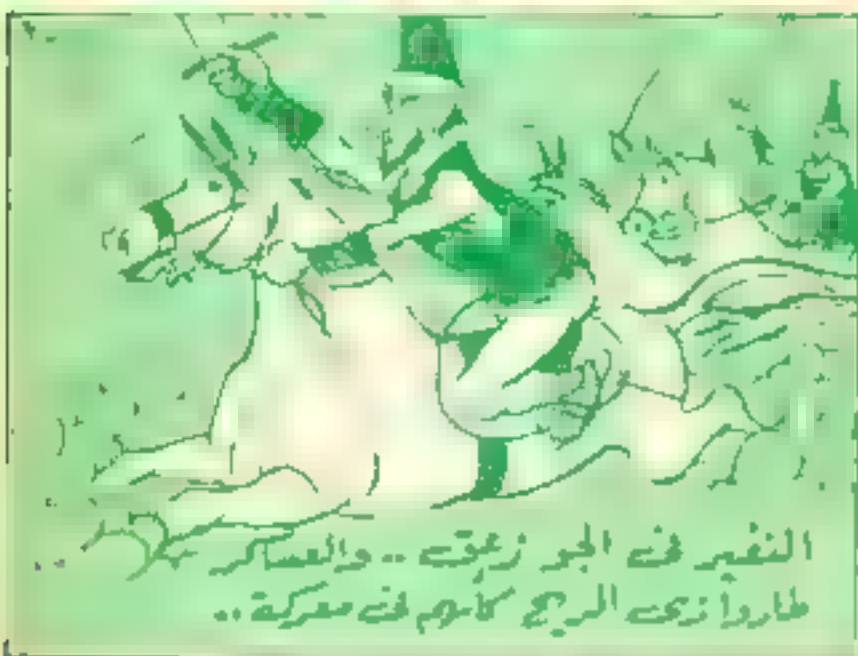 النفير فى الجو زعق .. والعساكر
طاروا زى الريح كأنهم فى معركة ..